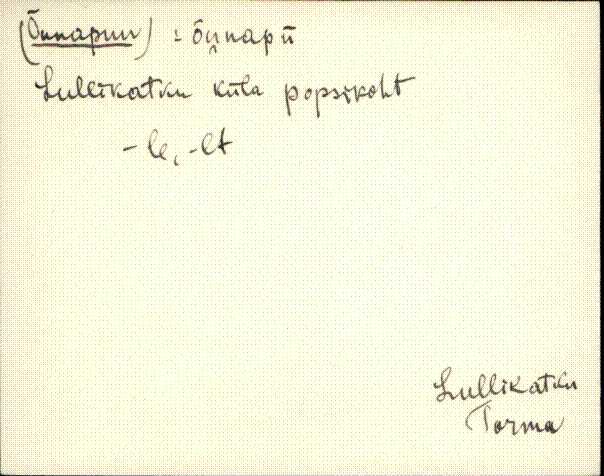 (Õunapuu) : õu̯napū
Lullikatku küla popsikoht
-le, -lt
Lullikatku
Torma